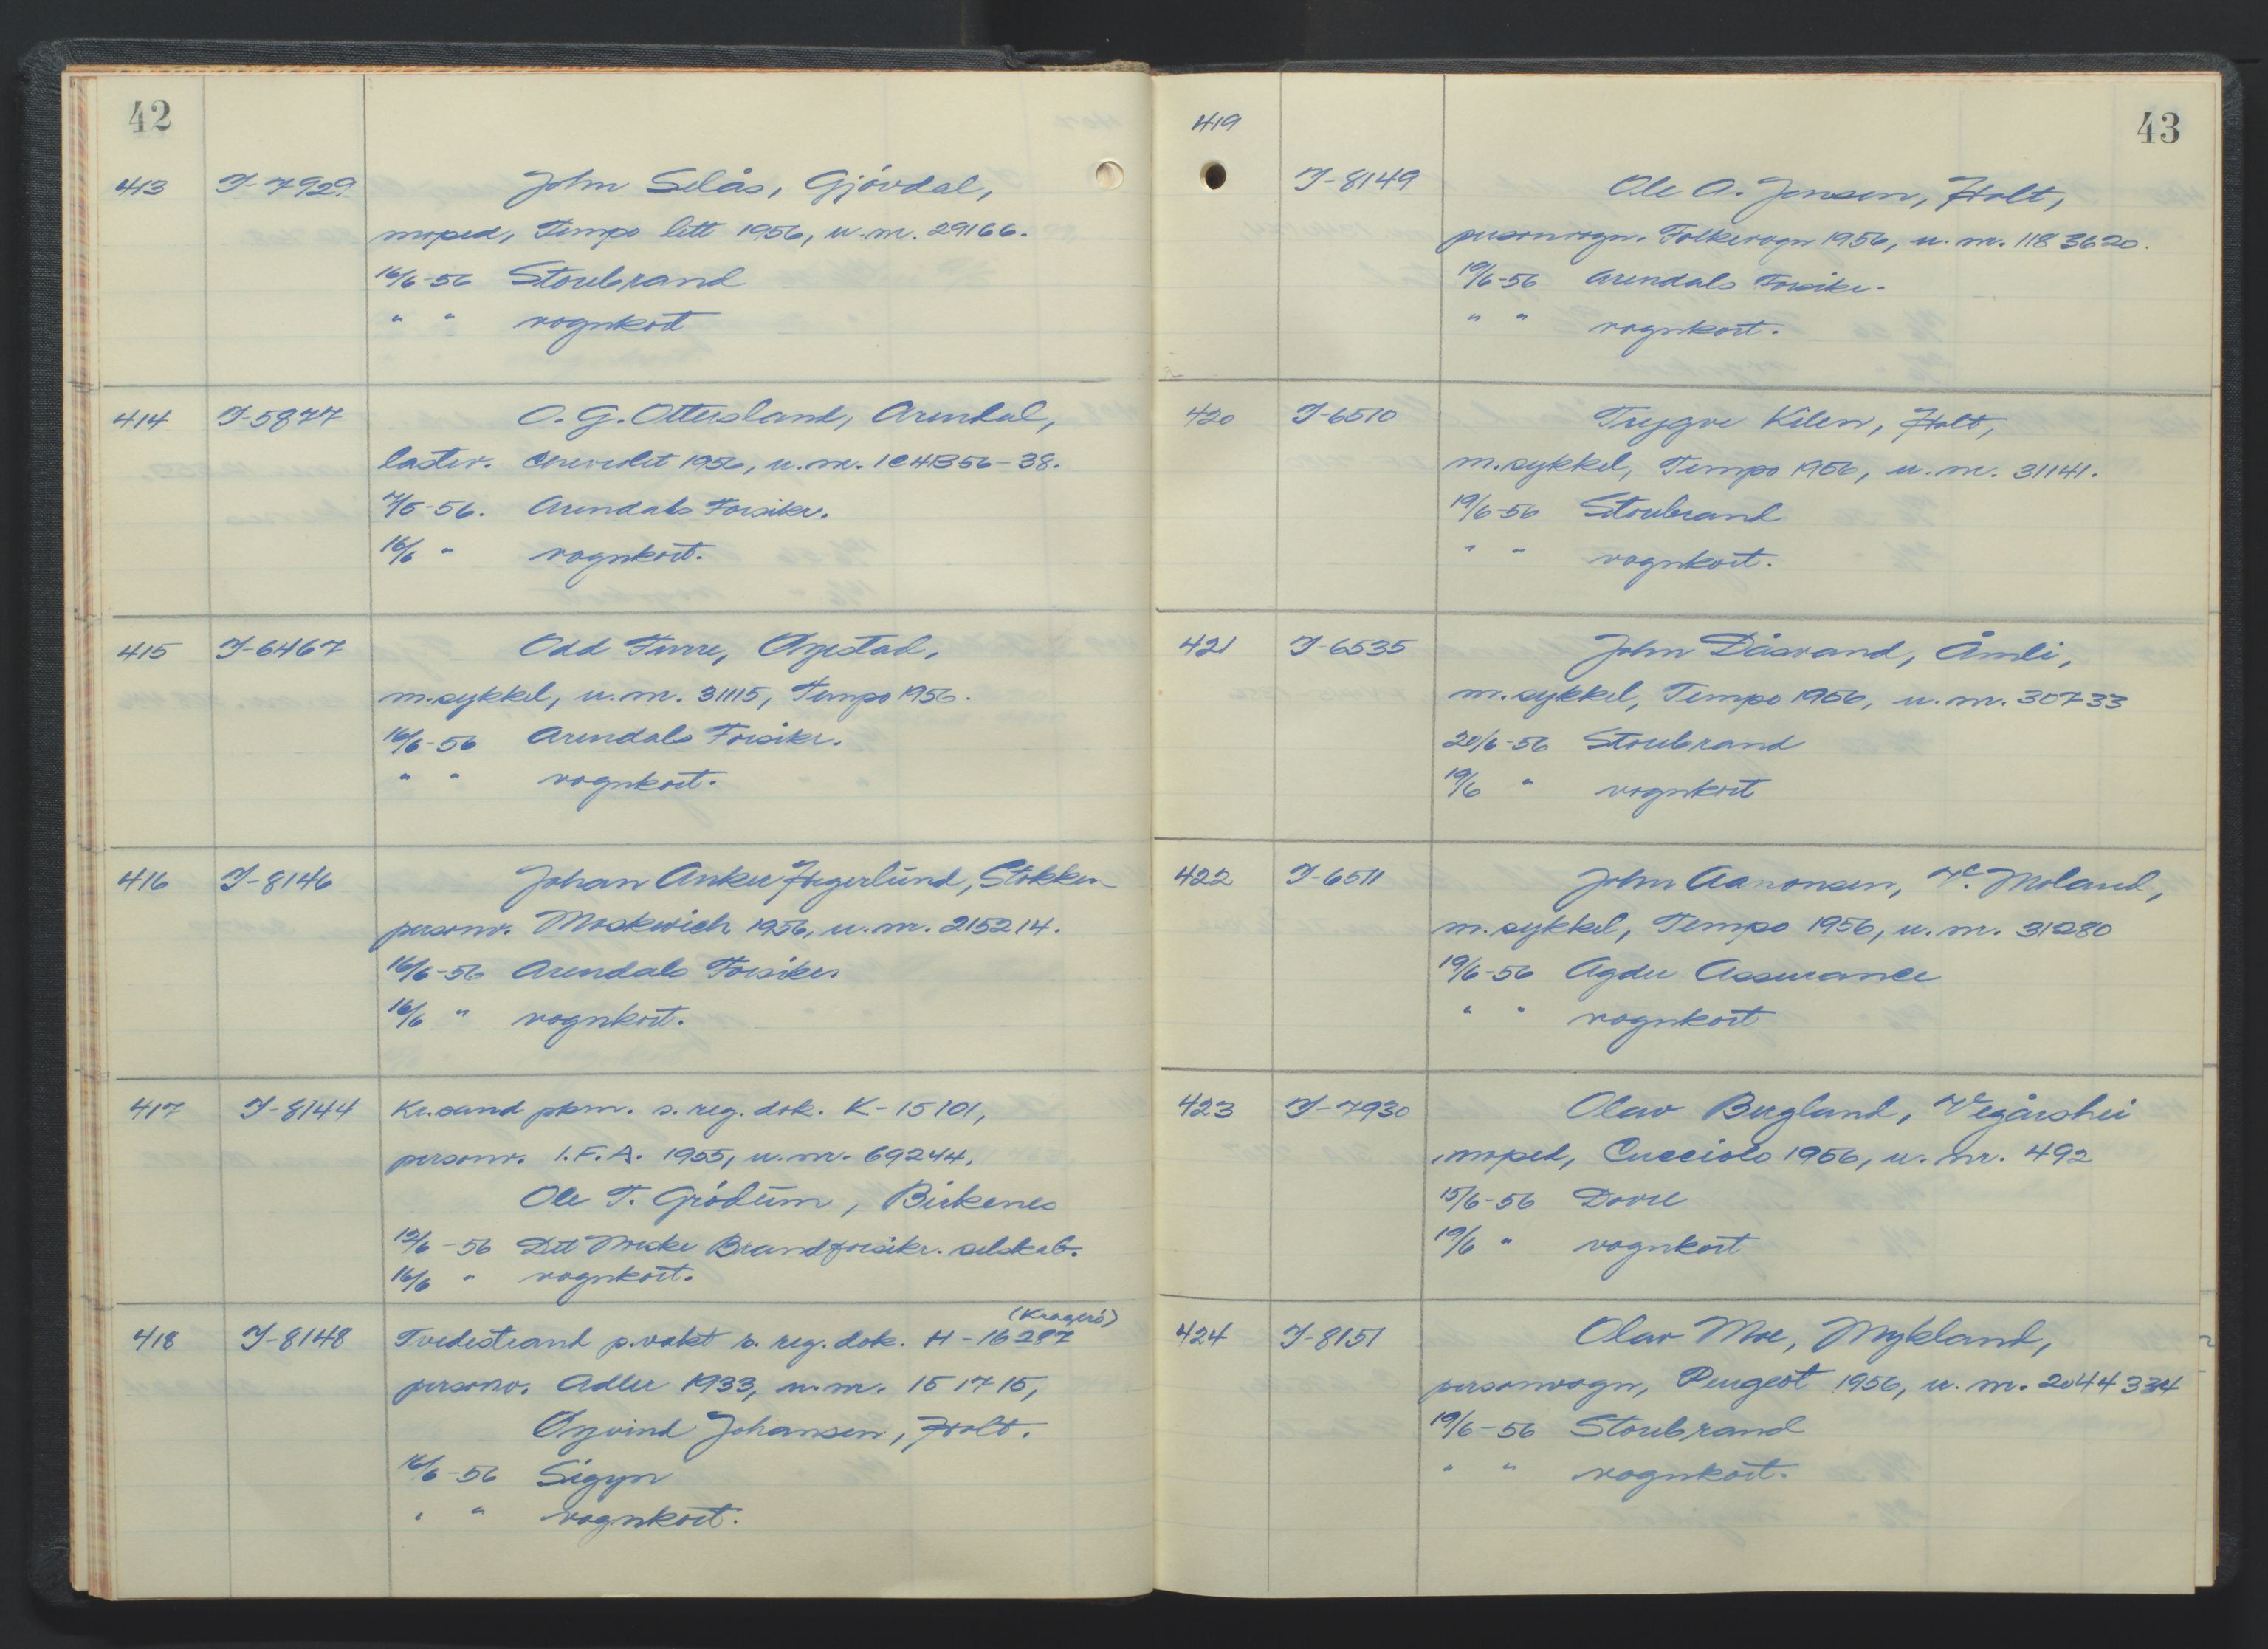 42
413 I-7929 John Selås, Gjövdal,
moped, Tempo lett 1956, u.nr. 29166.
16/6-56 Storebrand
" " vognkort
414 I-5877 O. G. Ottersland, Arendal,
lastev. Chevrolet 1956, u.nr. 1C4B56-38.
7/5-56. Arendals Forsikr.
16/6 " vognkort.
415 I-6467 Odd Furre, Øyestad,
m.sykkel, u.nr. 31115, Tempo 1956.
16/6-56 Arendals Forsikr.
" " vognkort.
416 I-8146 Johan Anker Hegerlund, Stokken
personv. Moskwich 1956, u.nr. 215214.
16/6-56 Arendals Forsikr.
16/6 " vognkort.
417 I-8144 Kr.sand pkm. s. reg. dok. K-15101,
personv. I.F.A. 1955, u.nr. 69244.
Ole T. Grödum, Birkenes
12/6-56 Det Norske Brandforsikr. selskab.
16/6 " vognkort.
(Kragerö)
418 I-8148 Tvedestrand p.vakt s. reg. dok. H-16287
personv. Adler 1933, u.nr. 151715,
Øyvind Johansen, Holt.
16/6-56 Sigyn
" " vognkort.
43
419
I-8149 Ole A. Jensen, Holt,
personvogn. Folkevogn 1956, u.nr. 1183620.
19/6-56 Arendals Forsikr.
" " vognkort.
420 I-6510 Trygve Kilen, Holt,
m.sykkel, Tempo 1956, u.nr. 31141.
19/6-56 Storebrand
" " vognkort.
421 I-6535 John Dåsvand, Åmli,
m.sykkel, Tempo 1956, u.nr. 30733
20/6-56 Storebrand
19/6 " vognkort
422 I-6511 John Aanonsen, V. Moland,
m.sykkel, Tempo 1956, u.nr. 31280
19/6-56 Agder Assurance
" " vognkort
423 I-7930 Olav Bergland, Vegårshei
moped, Cucciolo 1956, u.nr. 492
15/6-56 Dovre
19/6 " vognkort
424 I-8151 Olav Moe, Mykland,
personvogn, Peugeot 1956, u.nr. 2044334
19/6-56 Storebrand
" " vognkort.